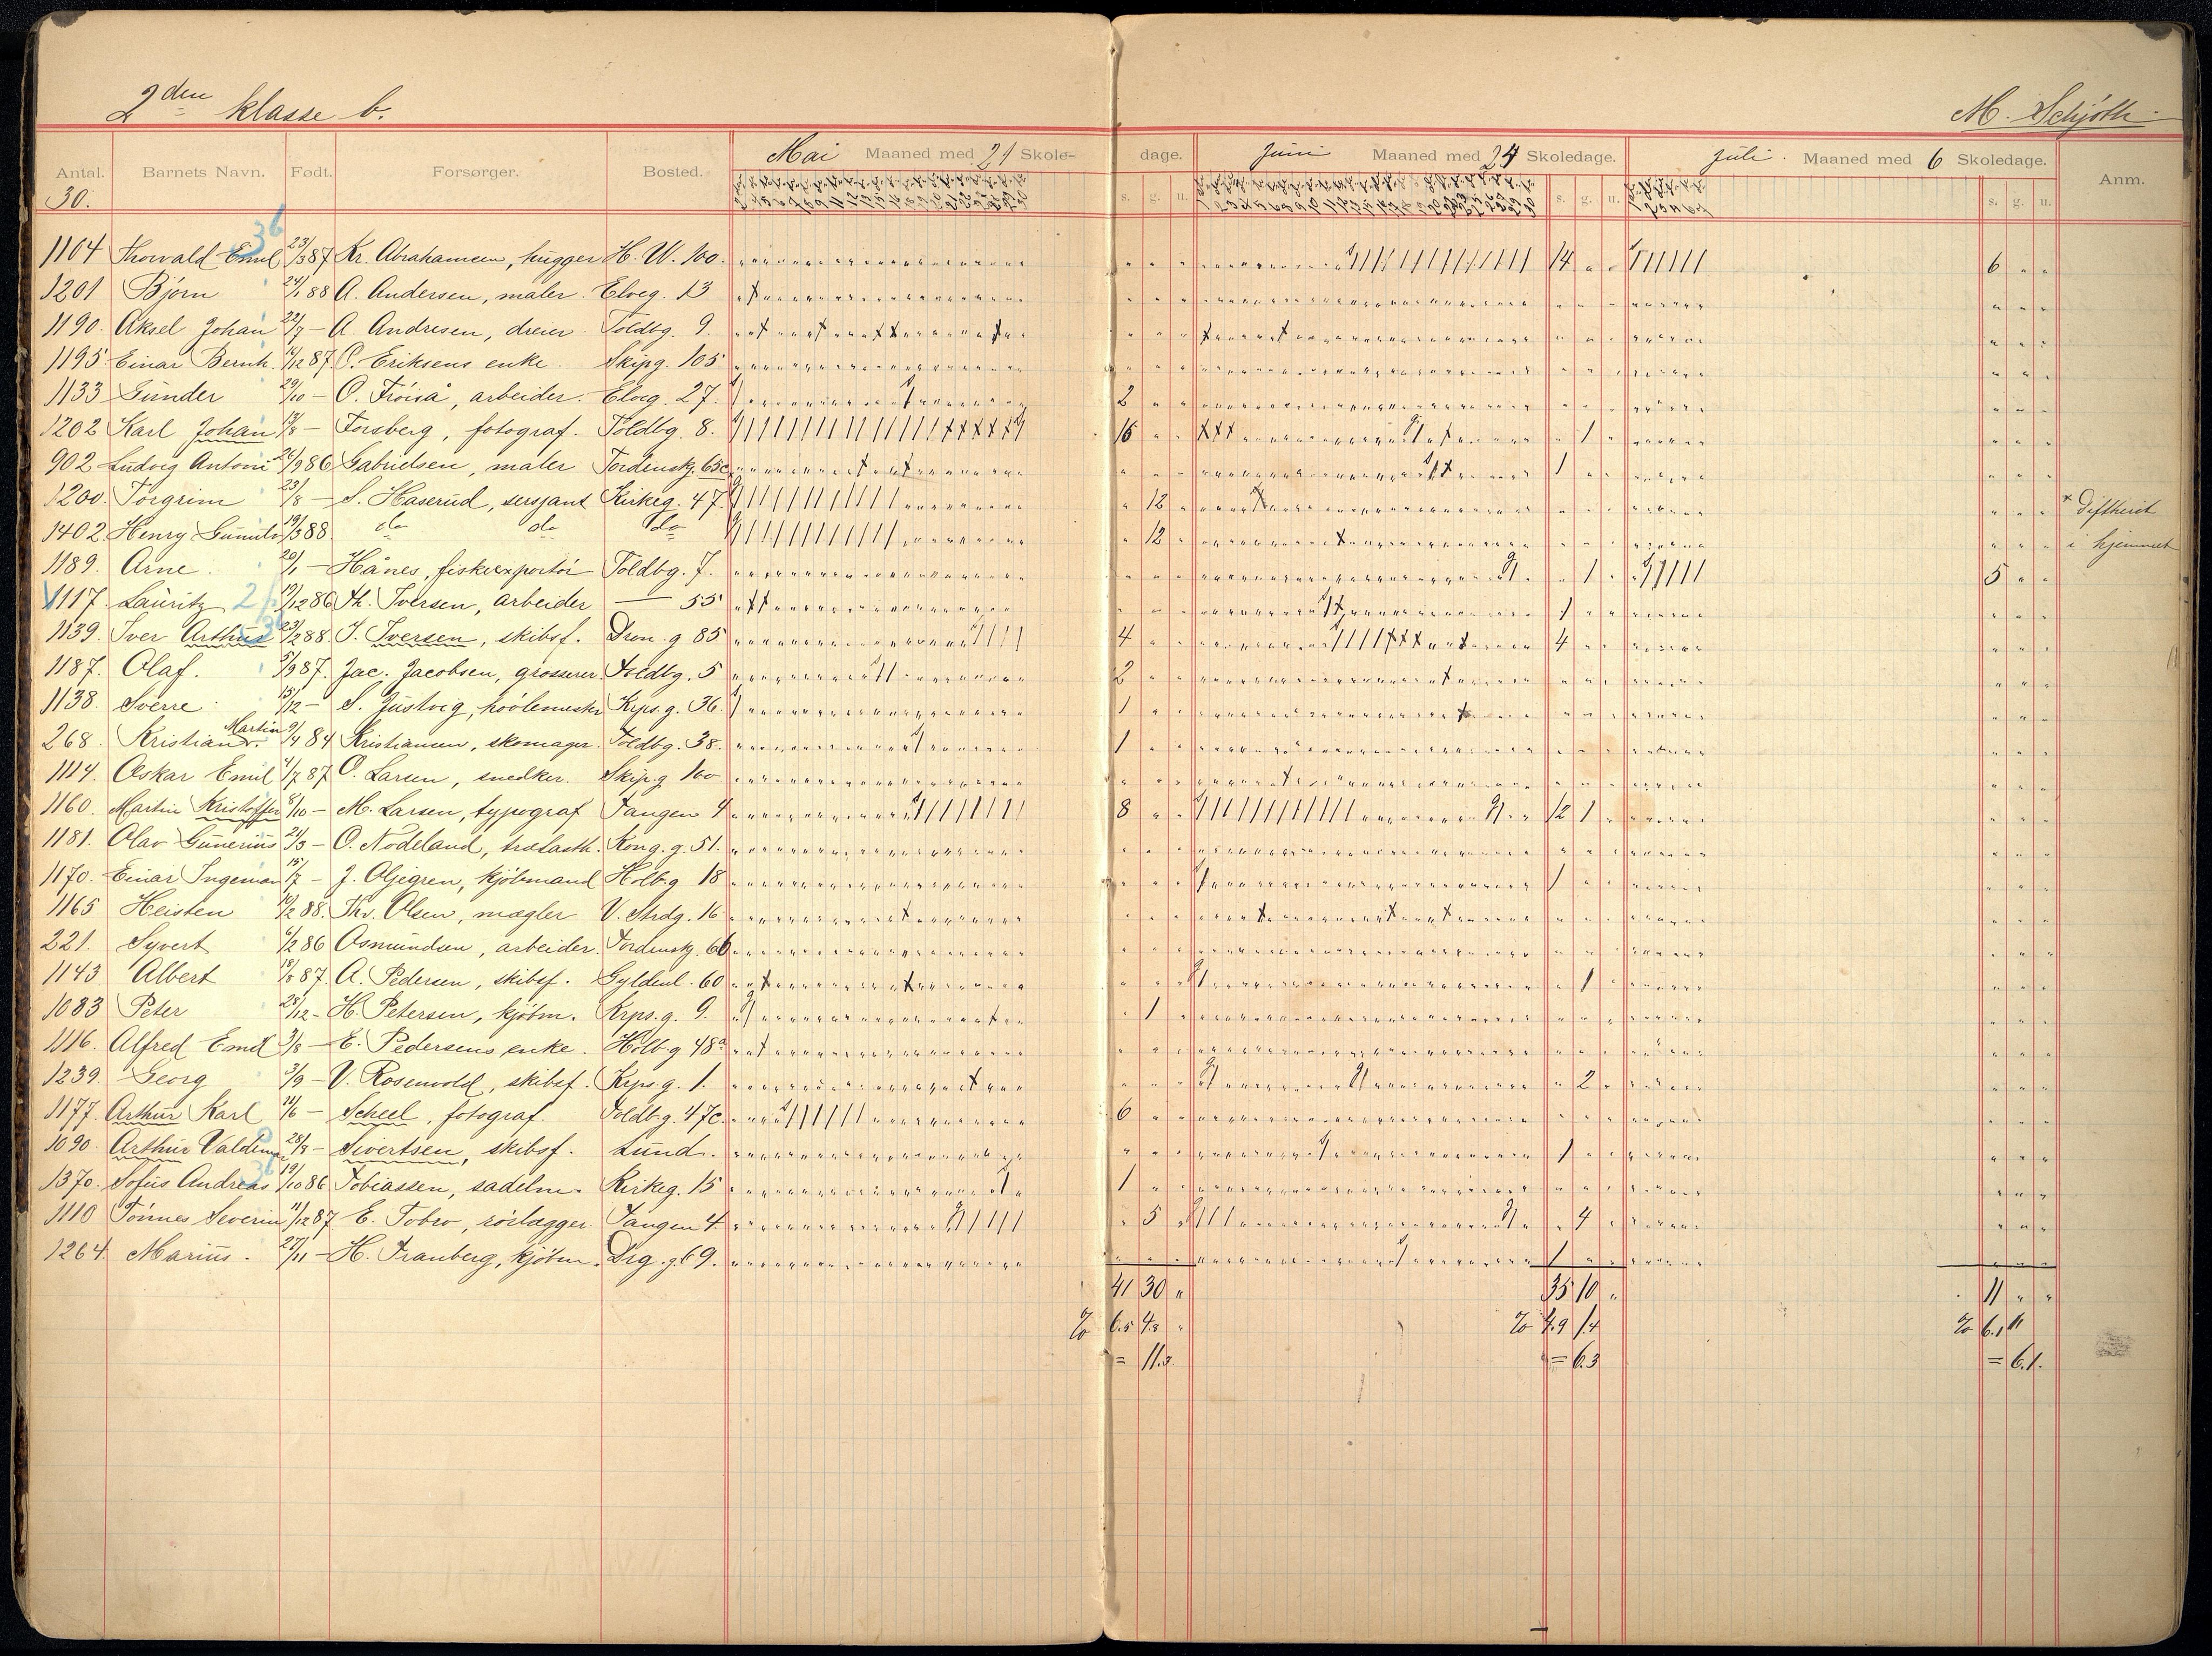 2den klasse b.
M. Schjøth.
Antal. Barnets Navn. Født. Forsørger. Bosted. Mai Maaned med 21 Skole-dage. Juni Maaned med 24 Skoledage. Juli. Maaned med 6 Skoledage. Anm.
30. s. g. u. s. g. u. s. g. u.
3b
1104 Thorvald Emil 23/3 87 Kr. Abrahamsen, hugger H. W. 100. 14 " " 6 " "
1201 Bjørn 24/1 88 A. Andersen, maler. Elveg. 13
1190. Aksel Johan 22/7 — A. Andresen, dreier. Toldbg. 9.
1195 Einar Bernh. 16/12 87. O. Eriksens enke. Skipg. 105
1133 Gunder 29/10 — O. Frøiså, arbeider. Elveg. 27. 2 " "
1202 Karl Johan 13/8 — Forsberg, fotograf. Toldbg. 8. 16 " " " 1 "
902 Ludvig Antoni 26/9 86 Gabrielsen, maler Tordenskj. 65c 1 " "
1200. Torgrim 23/8 — S. Haserud, sersjant Kirkeg. 47. " 12 " * Diftherit
1402. Henry Gunula 19/3 88. do do do " 12 " i hjemmet
1189. Arne. 20/1 — Hånes, fiskeexportør Toldbg. 7. " 1 " 5 " "
1117. Lauritz 19/12 86 Th. Iversen, arbeider — 55 1 " "
1139. Iver Arthur 23/2 88. J. Iversen, skibsf. Dron. g 85 4 " " 4 " "
1187. Olaf. 5/9 87. Jac. Jacobsen, grosserer. Toldbg. 5 2 " "
1138. Sverre 15/12 — S. Justvig, høvlemester Krps. g. 36. 1 " "
268. Kristian Martin. 9/4 84 Kristiansen, skomager. Toldbg. 38. 1 " "
1114. Oskar Emil 4/7 87 O. Larsen, snedker. Skip.g 100
1160. Martin Kristoffer 8/10 — M. Larsen, typograf Tangen 4 8 " " 12 1 "
1181. Olav Gunerius 24/3 — O. Nodeland, trælasth. Kong. g. 51.
1170. Einar Ingeman 15/7 — J. Oljegren, kjøbmand Holb.g 18 1 " "
1165 Heisten 19/2 88. Thv. Olsen, mægler V. Strdg. 16
221. Syvert 6/2 86 Osmundsen, arbeider. Tordenskj. 66
1143 Albert 18/8 87. A. Pedersen, skibsf. Gyldenl. 60 " 1 "
1083 Peter 28/12 — H. Petersen, kjøbm. Krps. g. 9. " 1 "
1116. Alfred Emil 3/8 — E. Pedersens enke. Holb.g 48a
1239. Georg 3/9 — V. Rosenvold, skibsf. Krps. g. 1. " 2 "
1177. Arthur Karl 14/6 — Scheel, fotograf. Toldbg. 47c. 6 " "
1090. Arthur Valdemar 28/9 — Sivertsen, skibsf. Lund. 1 " "
1370. Sofus Andreas 19/10 86 Tobiassen, sadelm. Kirkeg. 15 1 " "
1110 Tønnes Severin 11/12 87 E. Tobro, rørlægger. Tangen 4 " 5 " " 4 "
1264. Marius. 27/11 — H. Tranberg, kjøbm. Drg. g. 69. 1 " "
41 30 " 35 10 " 11 " "
% 6.5 4.8 " % 4.9 1.4 % 6.1 "
= 11.3 = 6.3 = 6.1.